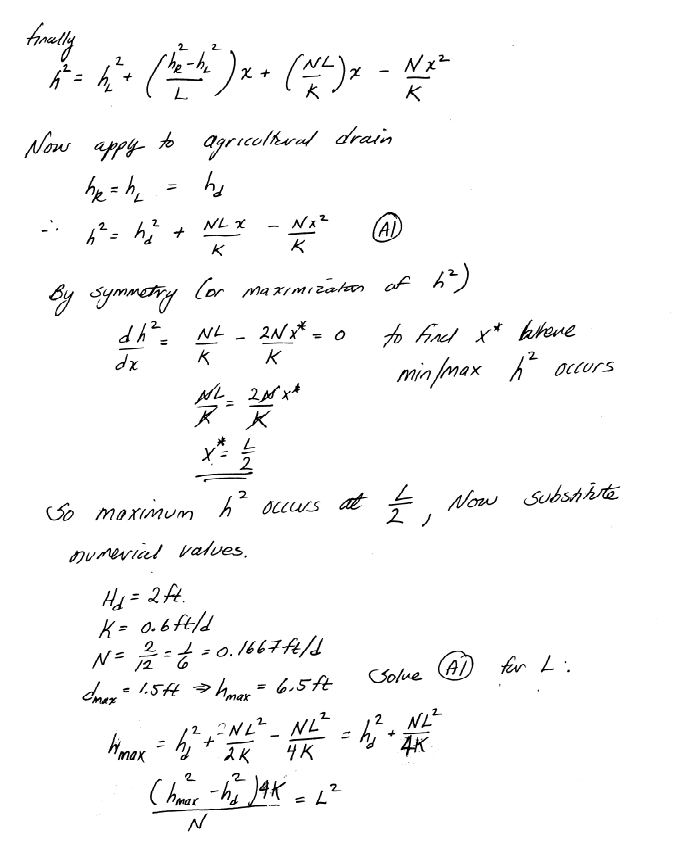 finally
h² = h_L² + ((h_R² - h_L²)/L) x + (NL/K) x - Nx²/K
Now appy to agricultural drain
h_R = h_L = h_d
∴ h² = h_d² + NLx/K - Nx²/K (A1)
By symmetry (or maximization of h²)
dh²/dx = NL/K - 2Nx*/K = 0 to find x* where
min/max h² occurs
NL/K = 2Nx*/K
x* = L/2
So maximum h² occurs at L/2, Now substitute
numerical values.
H_d = 2 ft.
K = 0.6 ft/d
N = 2/12 = 1/6 = 0.1667 ft/d
d_max = 1.5 ft ⇒ h_max = 6.5 ft Solve (A1) for L:
h_max = h_d² + 2NL²/2K - NL²/4K = h_d² + NL²/4K
(h_max² - h_d²)4K/N = L²